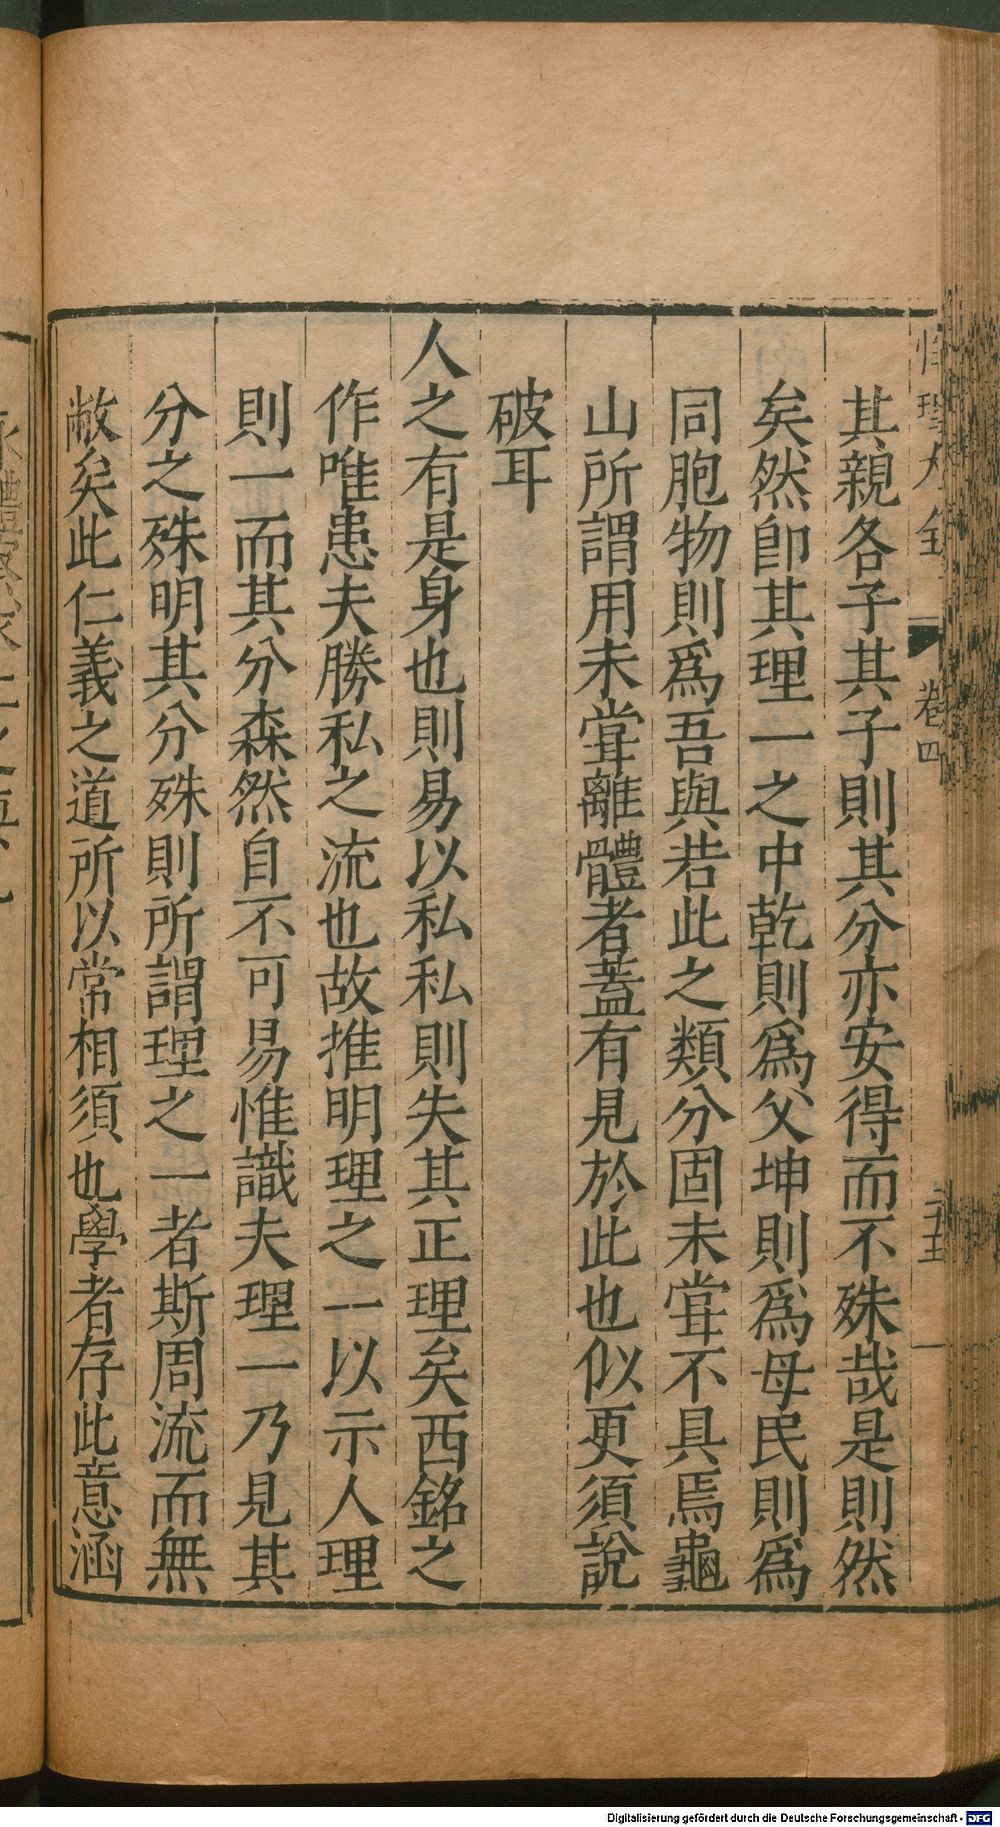 性理大全 卷四 二十五
其親各子其子則其分亦安得而不殊哉是則然
矣然卽其理一之中乾則爲父坤則爲母民則爲
同胞物則爲吾與若此之類分固未甞不具焉龜
山所謂用未甞離體者蓋有見於此也似更須說
破耳
人之有是身也則易以私私則失其正理矣西銘之
作唯患夫勝私之流也故推明理之一以示人理
則一而其分森然自不可易惟識夫理一乃見其
分之殊明其分殊則所謂理之一者斯周流而無
敝矣此仁義之道所以常相須也學者存此意涵
Digitalisierung gefördert durch die Deutsche Forschungsgemeinschaft - DFG